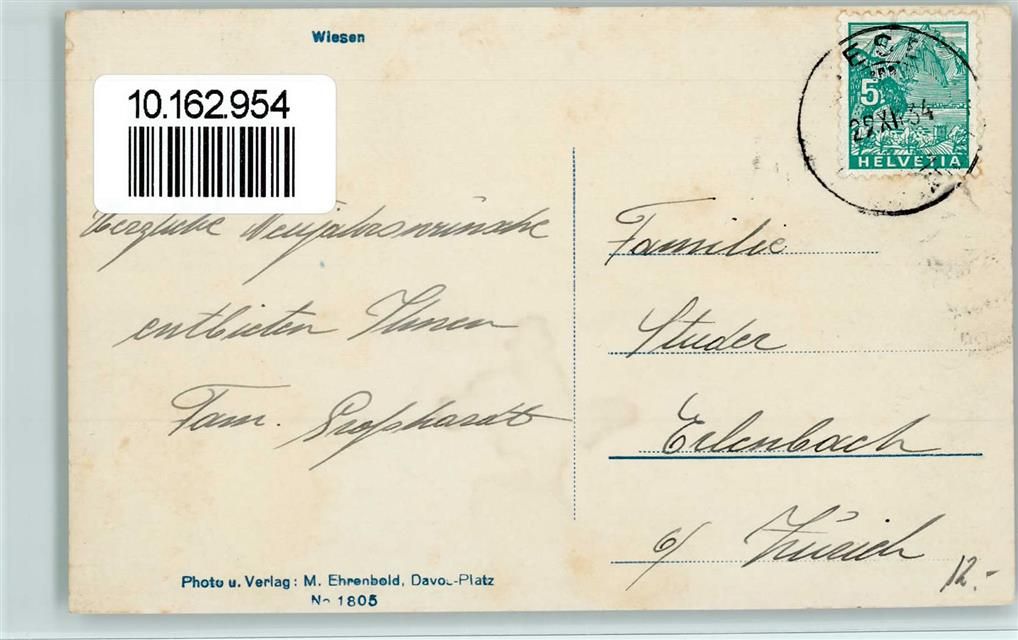 Wiesen
10.162.954
5
HELVETIA
Herzliche Neujahrswünsche
entbieten Ihnen
Fam. Großhardt
Familie
Studer
Erlenbach
b/ Zürich
Photo u. Verlag: M. Ehrenbold, Davos-Platz
No 1805
12.-